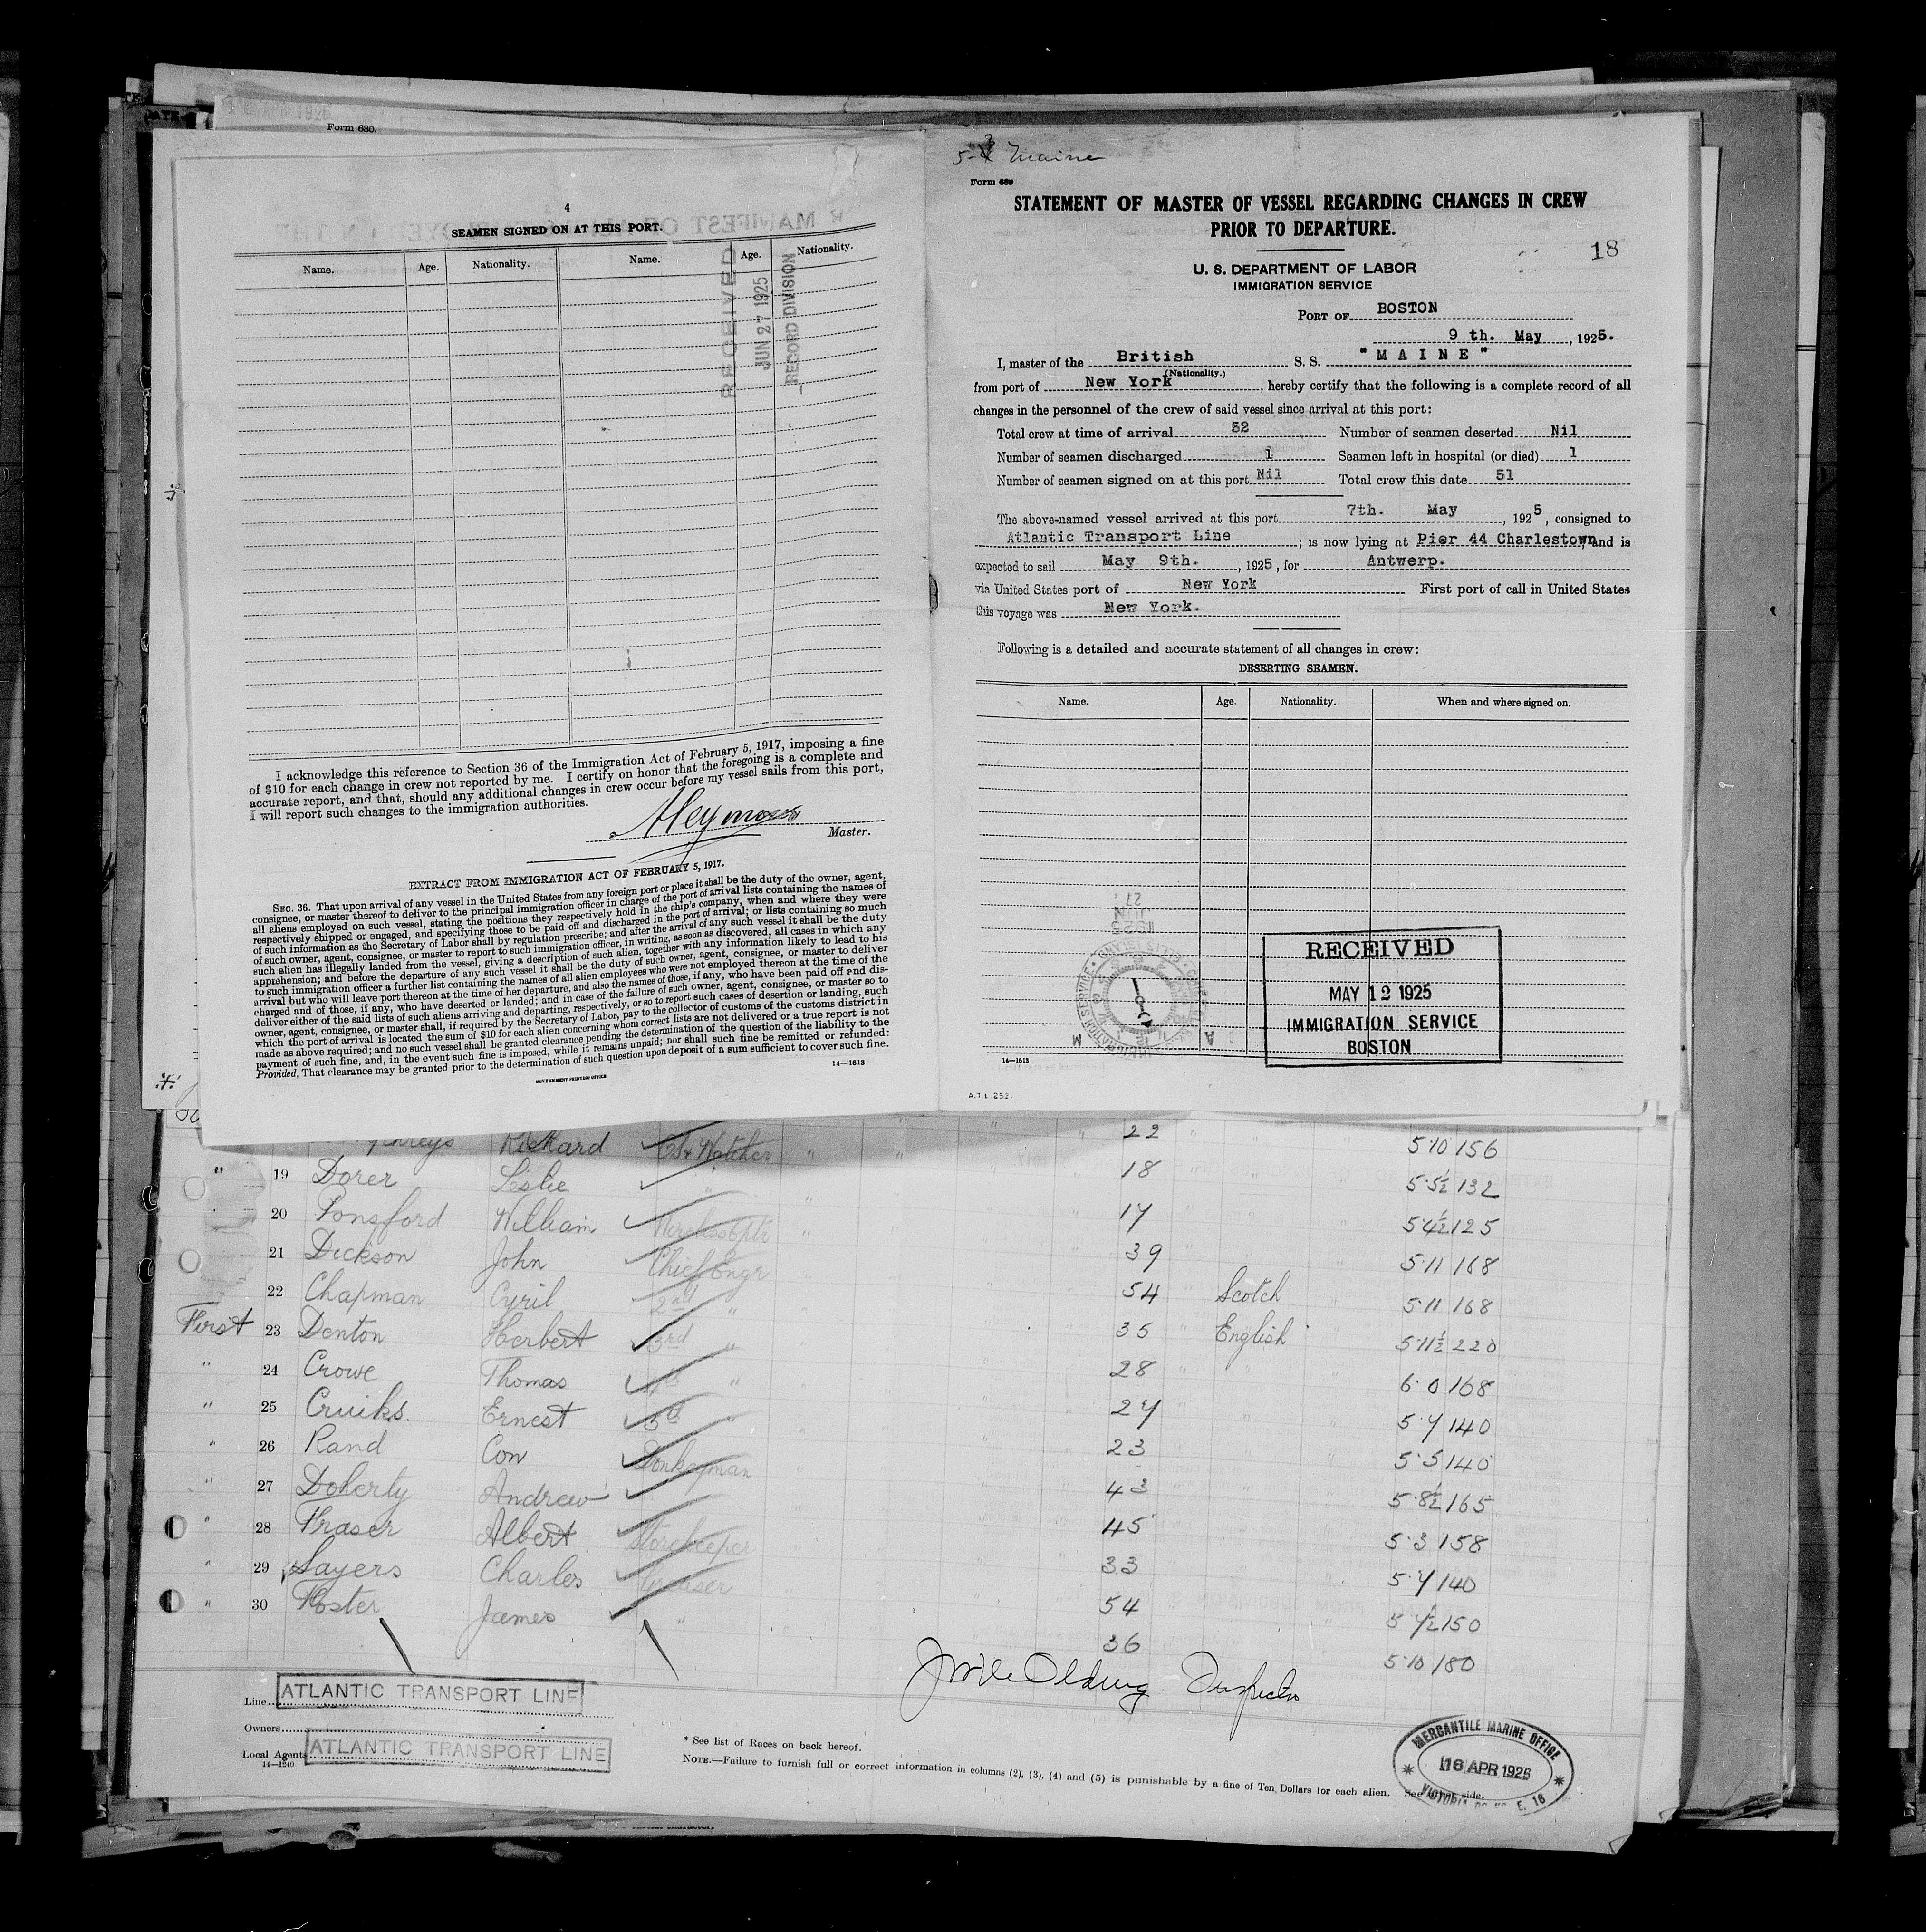 Form 680.
4
SEAMEN SIGNED ON AT THIS PORT.
Name. Age. Nationality. Name. Age. Nationality.
RECEIVED
JUN 27 1925
RECORD DIVISION
I acknowledge this reference to Section 36 of the Immigration Act of February 5, 1917, imposing a fine
of $10 for each change in crew not reported by me. I certify on honor that the foregoing is a complete and
accurate report, and that, should any additional changes in crew occur before my vessel sails from this port,
I will report such changes to the immigration authorities.
Master.
EXTRACT FROM IMMIGRATION ACT OF FEBRUARY 5, 1917.
SEC. 36. That upon arrival of any vessel in the United States from any foreign port or place it shall be the duty of the owner, agent,
consignee, or master thereof to deliver to the principal immigration officer in charge of the port of arrival lists containing the names of
all aliens employed on such vessel, stating the positions they respectively hold in the ship's company, when and where they were
respectively shipped or engaged, and specifying those to be paid off and discharged in the port of arrival; or lists containing so much
of such information as the Secretary of Labor shall by regulation prescribe; and after the arrival of any such vessel it shall be the duty
of such owner, agent, consignee, or master to report to such immigration officer, in writing, as soon as discovered, all cases in which any
such alien has illegally landed from the vessel, giving a description of such alien, together with any information likely to lead to his
apprehension; and before the departure of any such vessel it shall be the duty of such owner, agent, consignee, or master to deliver
to such immigration officer a further list containing the names of all alien employees who were not employed thereon at the time of the
arrival but who will leave port thereon at the time of her departure, and also the names of those, if any, who have been paid off and dis-
charged and of those, if any, who have deserted or landed; and in case of the failure of such owner, agent, consignee, or master so to
deliver either of the said lists of such aliens arriving and departing, respectively, or so to report such cases of desertion or landing, such
owner, agent, consignee, or master shall, if required by the Secretary of Labor, pay to the collector of customs of the customs district in
which the port of arrival is located the sum of $10 for each alien concerning whom correct lists are not delivered or a true report is not
made as above required; and no such vessel shall be granted clearance pending the determination of the question of the liability to the
payment of such fine, and, in the event such fine is imposed, while it remains unpaid; nor shall such fine be remitted or refunded:
Provided, That clearance may be granted prior to the determination of such question upon deposit of a sum sufficient to cover such fine.
14—1613
GOVERNMENT PRINTING OFFICE
5-3 Maine
Form 689
STATEMENT OF MASTER OF VESSEL REGARDING CHANGES IN CREW
PRIOR TO DEPARTURE.
18
U. S. DEPARTMENT OF LABOR
IMMIGRATION SERVICE
PORT OF BOSTON
9 th. May, 1925.
I, master of the British S. S. "MAINE"
(Nationality.)
from port of New York, hereby certify that the following is a complete record of all
changes in the personnel of the crew of said vessel since arrival at this port:
Total crew at time of arrival 52 Number of seamen deserted Nil
Number of seamen discharged 1 Seamen left in hospital (or died) 1
Number of seamen signed on at this port Nil Total crew this date 51
The above-named vessel arrived at this port 7th. May, 1925, consigned to
Atlantic Transport Line; is now lying at Pier 44 Charlestown and is
expected to sail May 9th., 1925, for Antwerp.
via United States port of New York First port of call in United States
this voyage was New York.
Following is a detailed and accurate statement of all changes in crew:
DESERTING SEAMEN.
Name. Age. Nationality. When and where signed on.
RECEIVED
MAY 12 1925
IMMIGRATION SERVICE
BOSTON
14—1613
A.T.L. 252
Richard 22 5·10 156
19 Dorer Leslie 18 5·5½ 132
20 Ponsford William Wireless Optr 17 5·4½ 125
21 Dickson John Chief Engr 39 5·11 168
22 Chapman Cyril 2nd " 54 Scotch 5·11 168
First 23 Denton Herbert 3rd " 35 English 5·11½ 220
" 24 Crowe Thomas 4th " 28 6·0 168
" 25 Cruiks. Ernest 5th " 27 5·7 140
" 26 Rand Con Donkeyman 23 5·5 140
" 27 Doherty Andrew 43 5·8½ 165
" 28 Fraser Albert Storekeeper 45 5·3 158
" 29 Sayers Charles Greaser 33 5·7 140
" 30 Foster James " 54 5·7½ 150
36 5·10 180
Inspector
Line ATLANTIC TRANSPORT LINE
Owners
Local Agents ATLANTIC TRANSPORT LINE
14—1240
* See list of Races on back hereof.
NOTE.—Failure to furnish full or correct information in columns (2), (3), (4) and (5) is punishable by a fine of Ten Dollars for each alien. See other side.
MERCANTILE MARINE OFFICE
16 APR 1925
E. 16